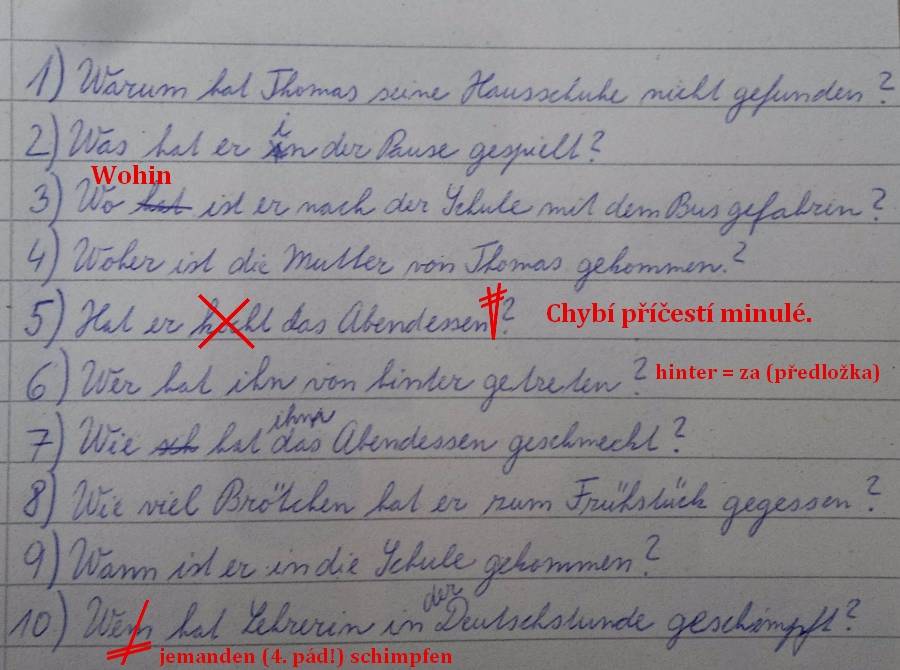 1) Warum hat Thomas seine Hausschuhe nicht gefunden?
i
2) Was hat er in der Pause gespielt?
Wohin
3) Wo hat ist er nach der Schule mit dem Bus gefahrin?
4) Woher ist die Mutter von Thomas gekommen.?
5) Hat er kocht das Abendessen? Chybí příčestí minulé.
6) Wer hat ihn von hinter getreten? hinter = za (předložka)
ihm
7) Wie sch hat das Abendessen geschmeckt?
8) Wie viel Brötchen hat er zum Frühstück gegessen?
9) Wann ist er in die Schule gekommen?
der
10) Wem hat Lehrerin in Deutschstunde geschimpft?
jemanden (4. pád!) schimpfen